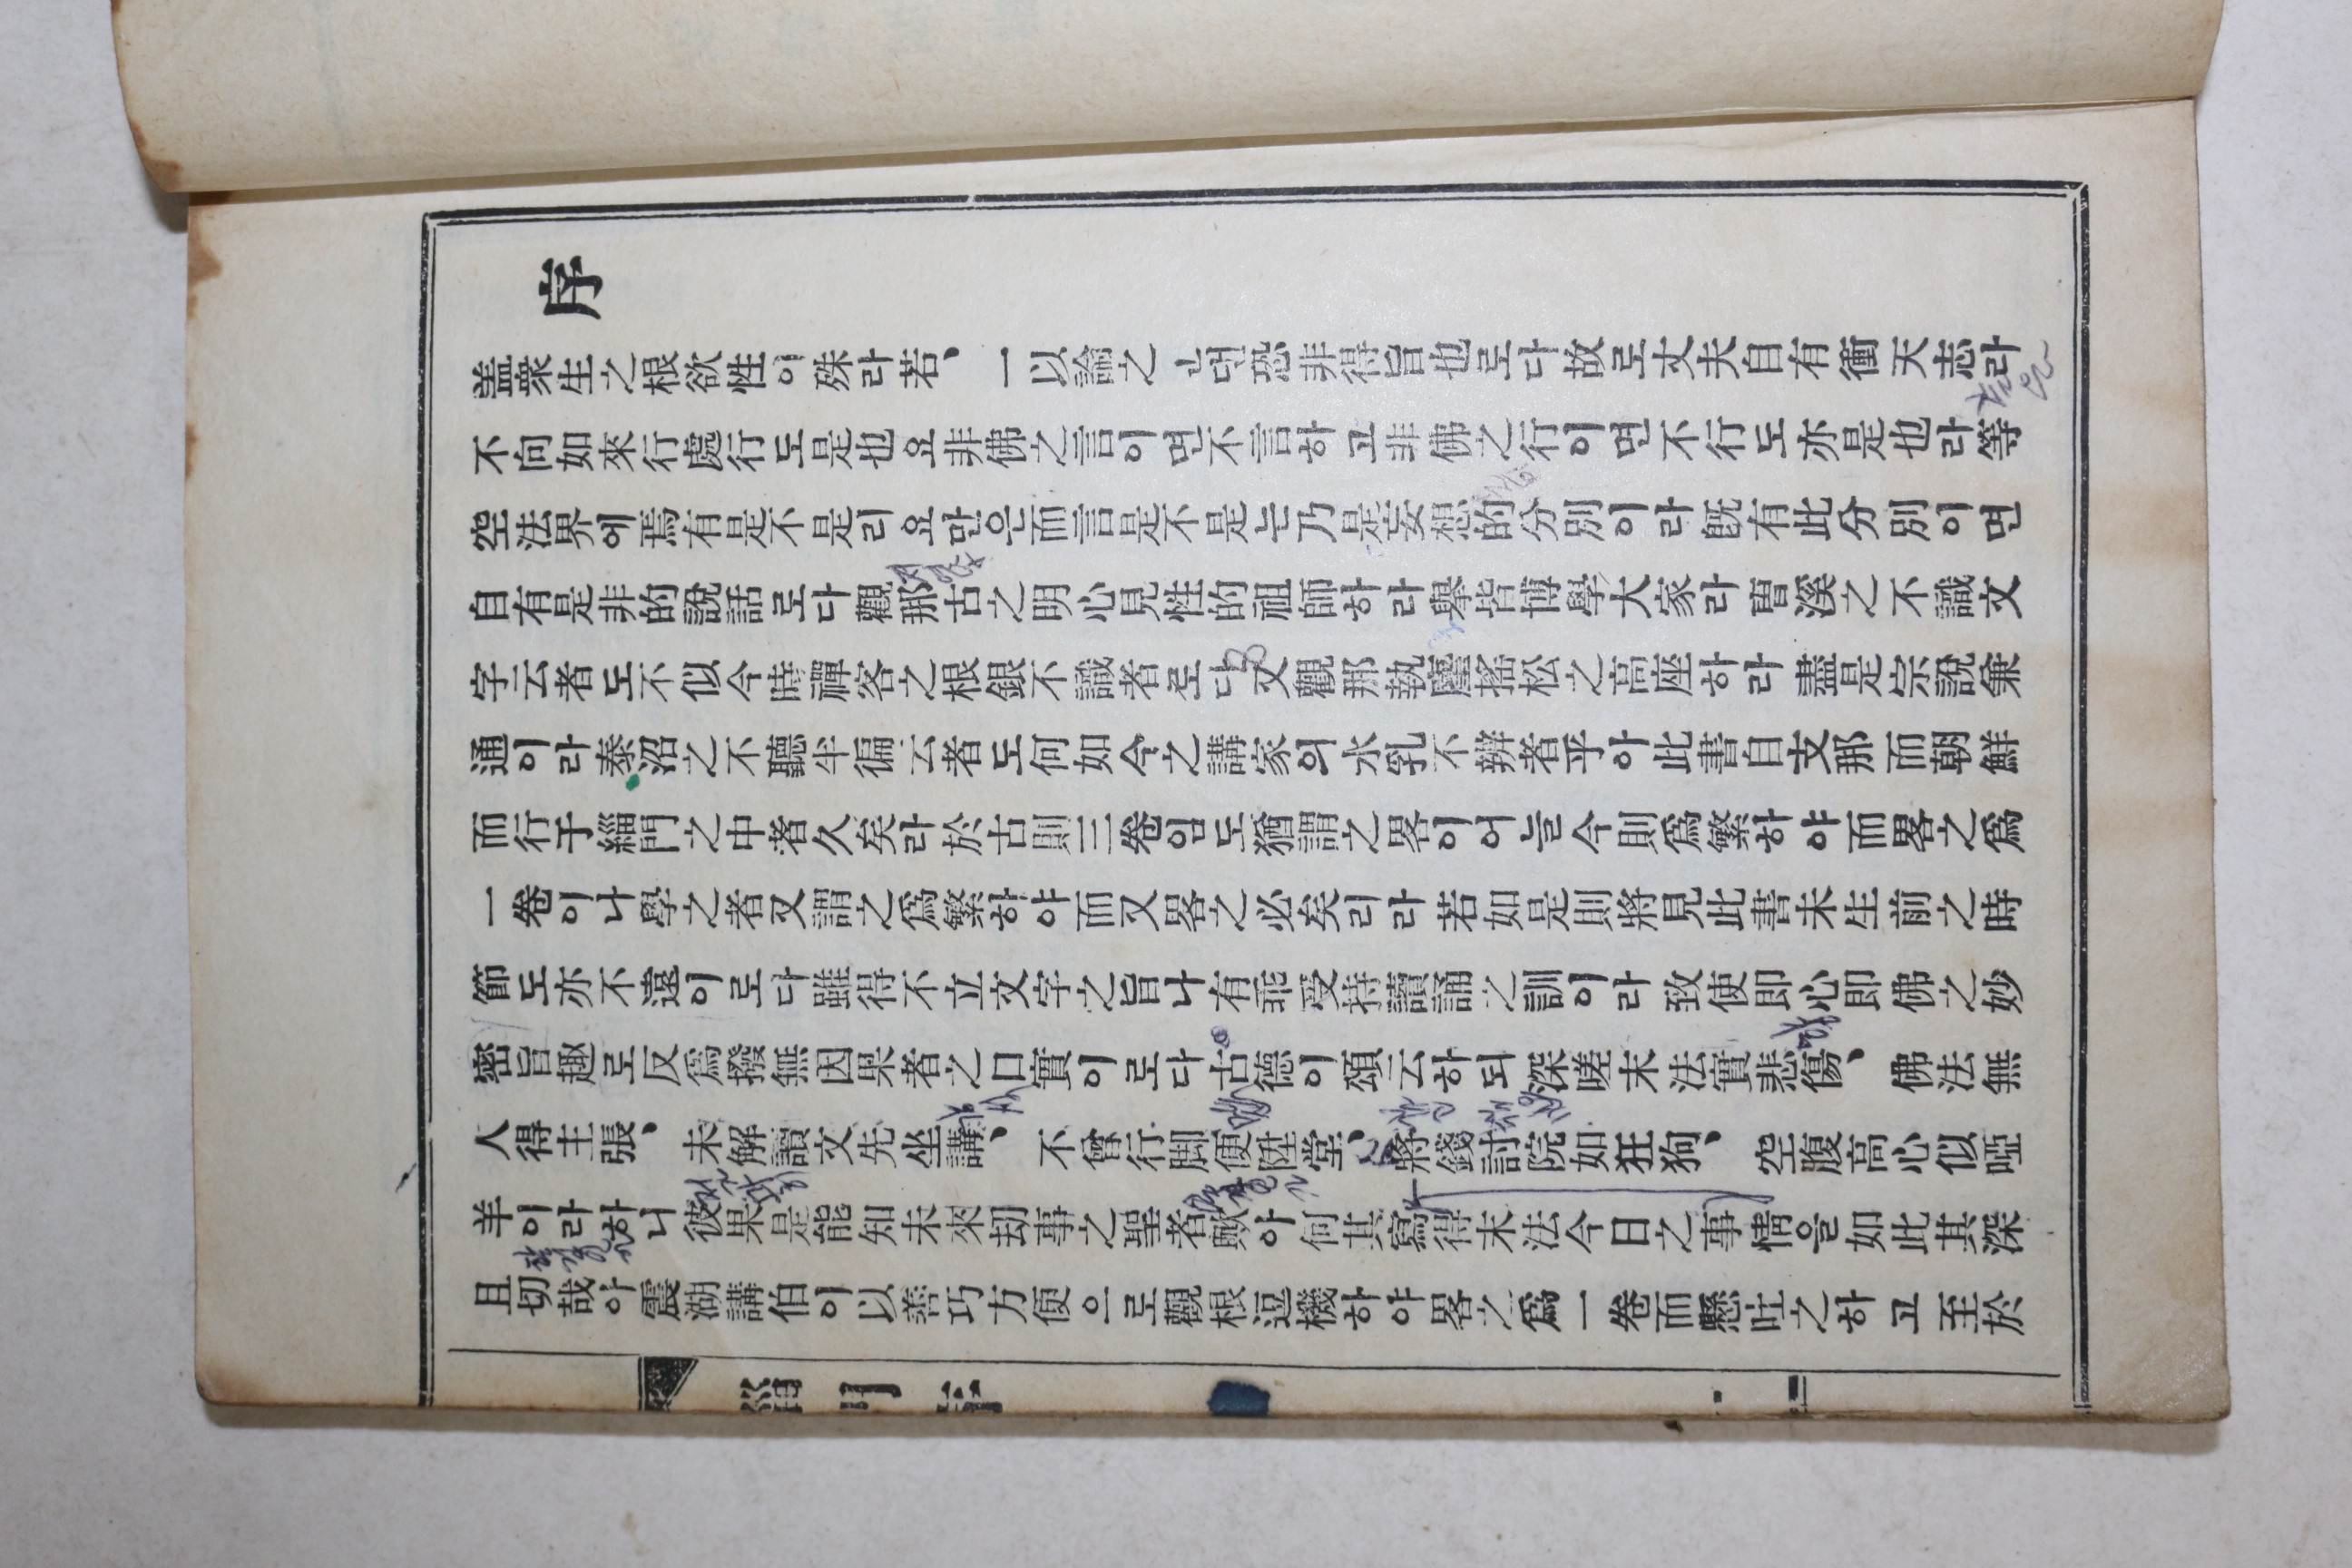 序
盖衆生之根欲性이殊라若、一以論之ㄴ댄恐非得旨也로다故로丈夫自有衝天志라
不向如來行處行도是也요非佛之言이면不言하고非佛之行이면不行도亦是也라等
空法界에焉有是不是리요만은而言是不是는乃是妄想的分別이라旣有此分別이면
自有是非的說話로다觀那古之明心見性的祖師하라擧皆博學大家라曺溪之不識文
字云者도不似今時禪客之根銀不識者로다又觀那執麈搖松之高座하라盡是宗說兼
通이라泰沼之不聽半徧云者도何如今之講家의水乳不辨者乎아此書自支那而朝鮮
而行于緇門之中者久矣라於古則三卷임도猶謂之畧이어늘今則爲繁하야而畧之爲
一卷이나學之者又謂之爲繁하야而又畧之必矣리라若如是則將見此書未生前之時
節도亦不遠이로다雖得不立文字之旨나有乖受持讀誦之訓이라致使即心即佛之妙
密旨趣로反爲撥無因果者之口實이로다古德이頌云하되深嗟末法實悲傷、佛法無
人得主張、未解讀文先坐講、不曾行脚便陞堂、將錢討院如狂狗、空腹高心似啞
羊이라하니彼果是能知未來刧事之聖者歟아何其寫得末法今日之事情을如此其深
且切哉아震湖講伯이以善巧方便으로觀根逗機하야畧之爲一卷而懸吐之하고至於
緇門序